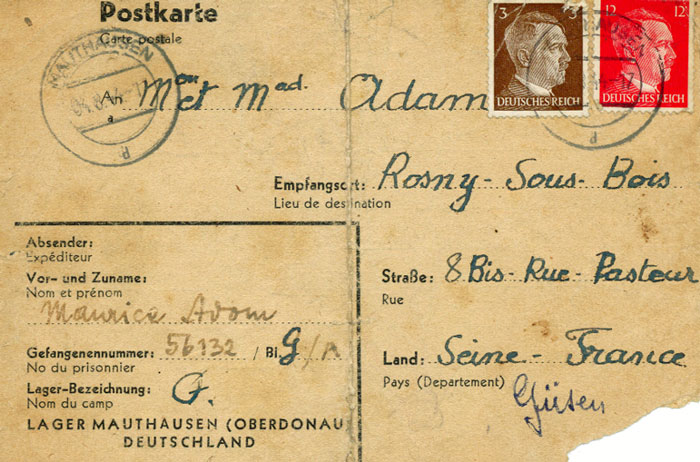 Postkarte
Carte postale
3 3
DEUTSCHES REICH
12 12
DEUTSCHES REICH
MAUTHAUSEN
An Mr et Mad. Adam
a
Empfangsort: Rosny-Sous-Bois
Lieu de destination
Absender:
Expéditeur
Vor- und Zuname:
Nom et prénom
Maurice Adam
Straße: 8 Bis-Rue-Pasteur
Rue
Gefangenennummer: 56132 / Bl G/A
No du prisonnier
Land: Seine-France
Pays (Departement)
Lager-Bezeichnung: G.
Nom du camp
Güsen
LAGER MAUTHAUSEN (OBERDONAU
DEUTSCHLAND